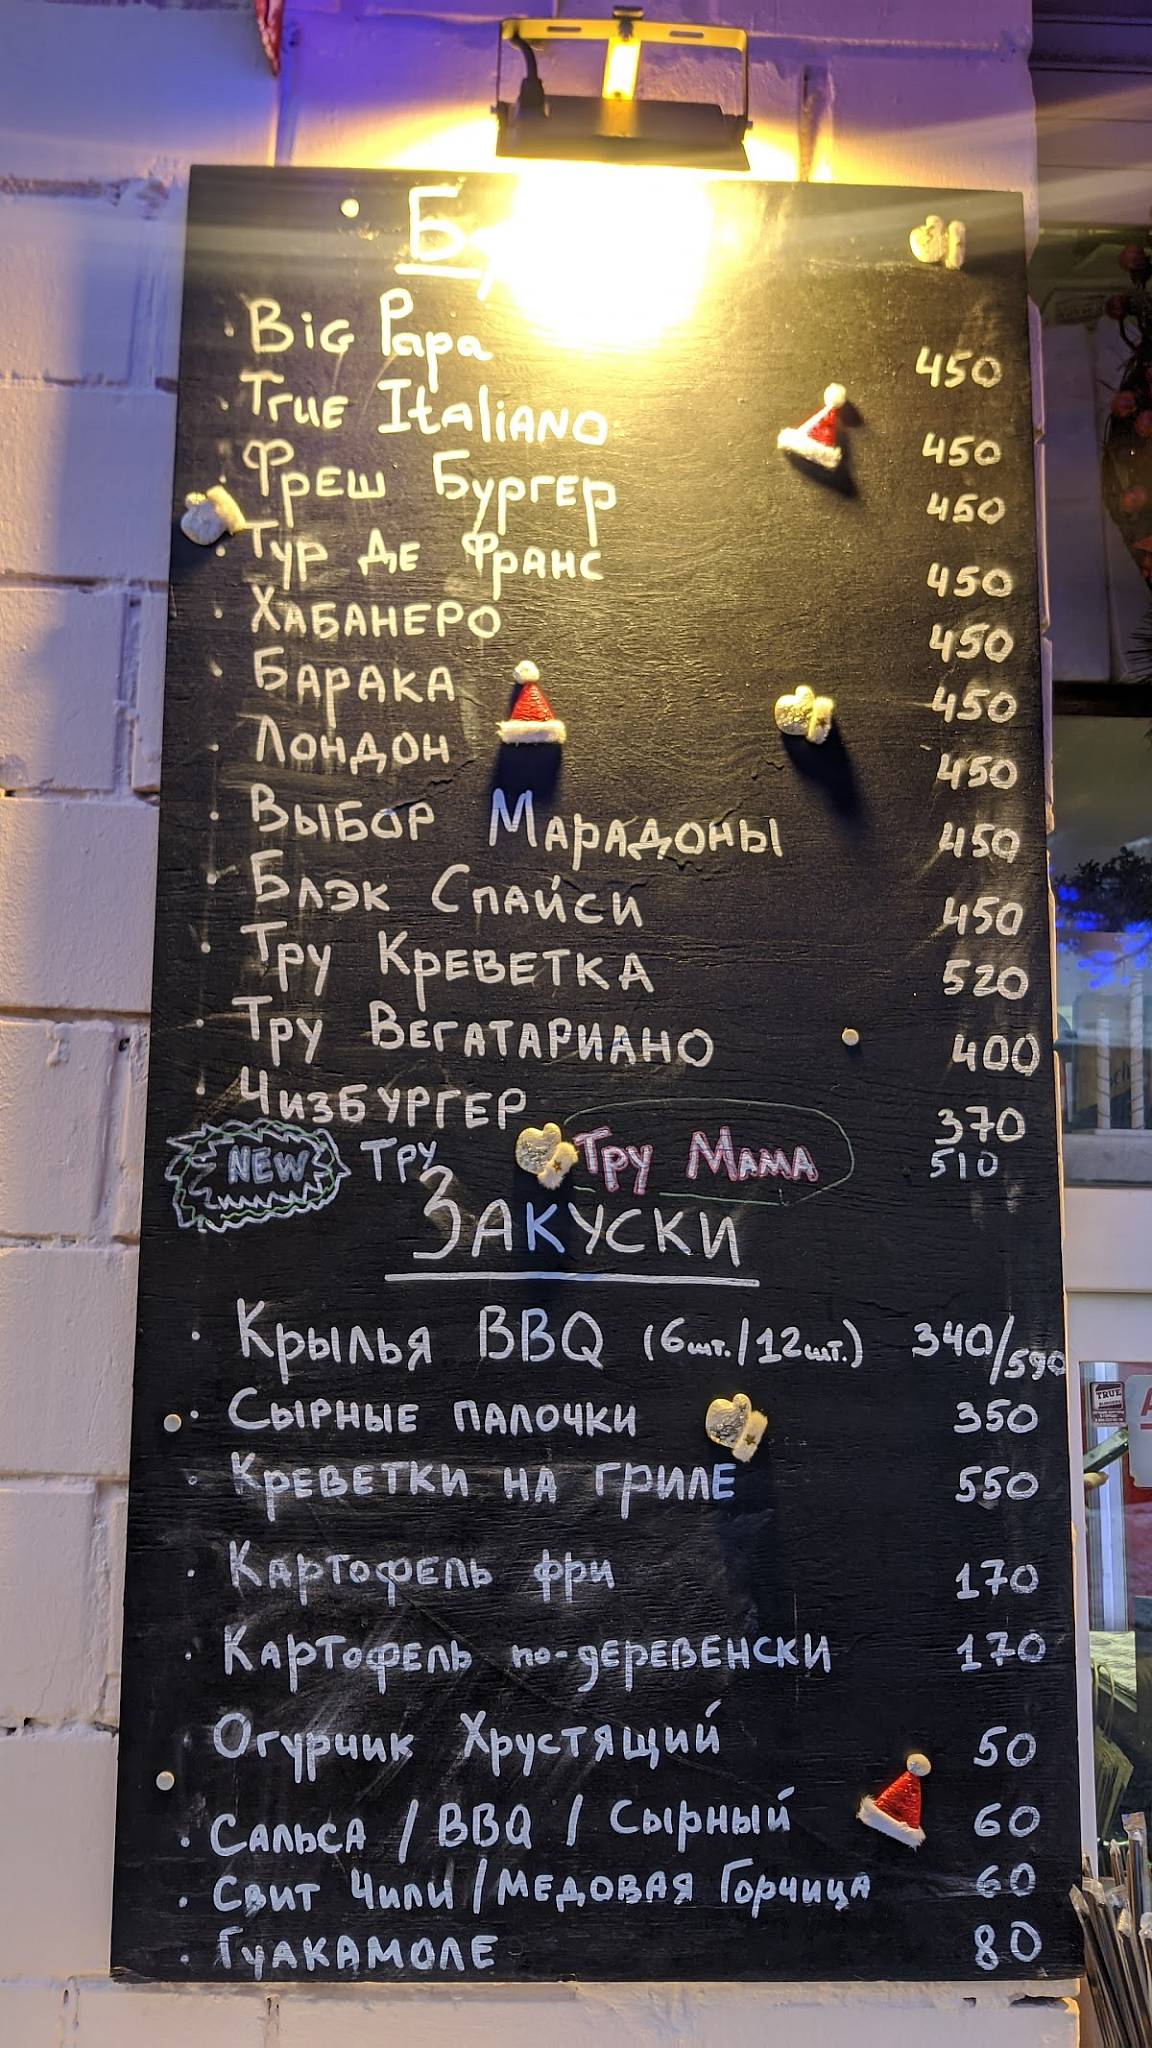 Big Papa 450
True Italiano 450
Фреш Бургер 450
Тур Де Франс 450
Хабанеро 450
Барака 450
Лондон 450
Выбор Марадоны 450
Блэк Спайси 450
Тру Креветка 520
Тру Вегатариано 400
Чизбургер 370
NEW Тру Тру Мама 510
Закуски
Крылья BBQ (6шт./12шт.) 340/590
Сырные палочки 350
Креветки на гриле 550
Картофель фри 170
Картофель по-деревенски 170
Огурчик Хрустящий 50
Сальса / BBQ / Сырный 60
Свит Чили / Медовая Горчица 60
Гуакамоле 80
TRUE